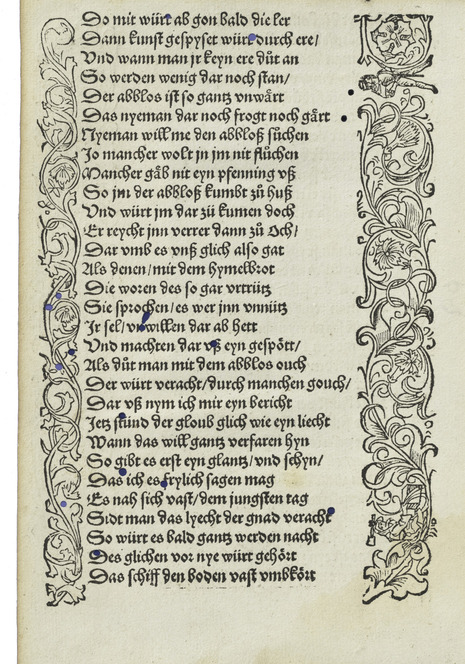 Do mit würt ab gon bald die ler
Dann kunst gespyset würt durch ere/
Vnd wann man jr keyn ere düt an
So werden wenig dar noch stan/
Der abblos ist so gantz vnwärt
Das nyeman dar noch frogt noch gärt
Nyeman will me den abbloß süchen
Jo mancher wolt jn jm nit flüchen
Mancher gäb nit eyn pfenning vß
So jm der abbloß kumbt zů huß
Vnd würt jm dar zü kumen doch
Er reycht jnn verrer dann zů Och/
Dar vmb es vnß glich also gat
Als denen/mit dem hymelbrot
Die woren des so gar vrtrütz
Sie sprochen/es wer jnn vnnütz
Jr sel/vnwillen dar ab hett
Vnd machten dar vß eyn gespött/
Als düt man mit dem abblos ouch
Der würt veracht/durch manchen gouch/
Dar vß nym ich mir eyn bericht
Jetz stünd der gloub glich wie eyn liecht
Wann das will gantz verfaren hyn
So gibt es erst eyn glantz/vnd schyn/
Das ich es frylich sagen mag
Es nah sich vast/dem jungsten tag
Sidt man das lyecht der gnad veracht
So würt es bald gantz werden nacht
Des glichen vor nye würt gehört
Das schiff den boden vast vmbkört